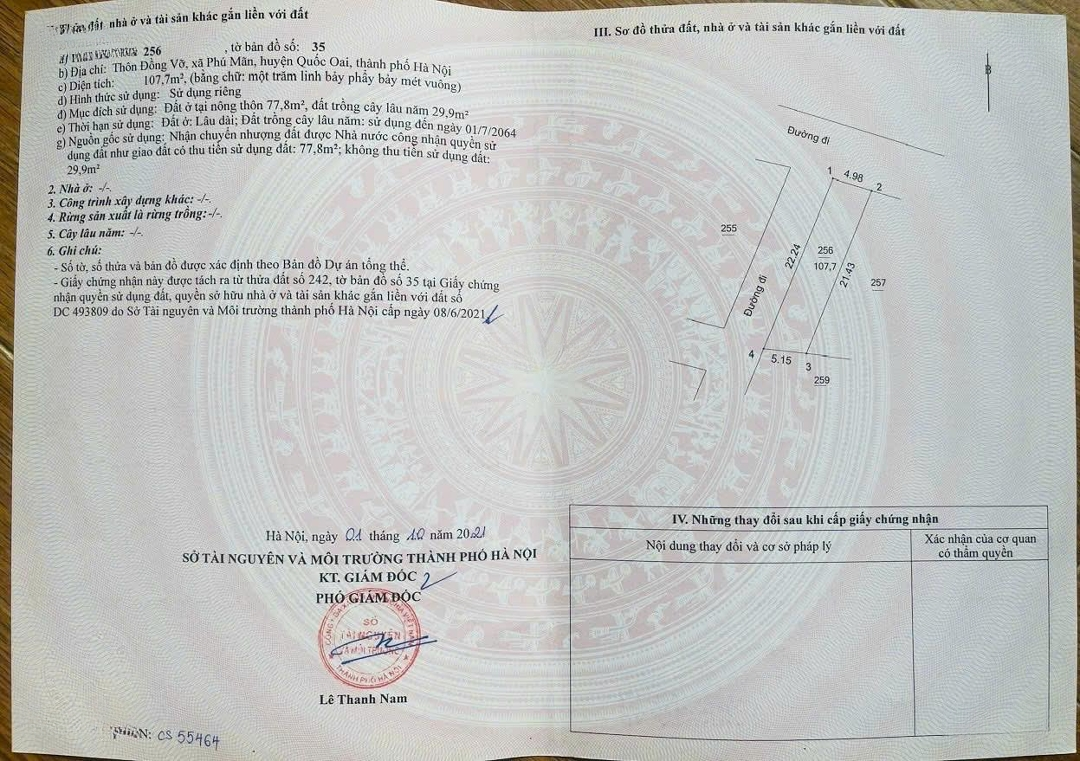 nhà ở và tài sản khác gắn liền với đất
256 , tờ bản đồ số: 35
b) Địa chỉ: Thôn Đồng Vỡ, xã Phú Mãn, huyện Quốc Oai, thành phố Hà Nội
c) Diện tích: 107,7m², (bằng chữ: một trăm linh bảy phẩy bảy mét vuông)
d) Hình thức sử dụng: Sử dụng riêng
đ) Mục đích sử dụng: Đất ở tại nông thôn 77,8m², đất trồng cây lâu năm 29,9m²
e) Thời hạn sử dụng: Đất ở: Lâu dài; Đất trồng cây lâu năm: sử dụng đến ngày 01/7/2064
g) Nguồn gốc sử dụng: Nhận chuyển nhượng đất được Nhà nước công nhận quyền sử
dụng đất như giao đất có thu tiền sử dụng đất: 77,8m²; không thu tiền sử dụng đất:
29,9m²
2. Nhà ở: -/-.
3. Công trình xây dựng khác: -/-.
4. Rừng sản xuất là rừng trồng:-/-.
5. Cây lâu năm: -/-.
6. Ghi chú:
- Số tờ, số thửa và bản đồ được xác định theo Bản đồ Dự án tổng thể.
- Giấy chứng nhận này được tách ra từ thửa đất số 242, tờ bản đồ số 35 tại Giấy chứng
nhận quyền sử dụng đất, quyền sở hữu nhà ở và tài sản khác gắn liền với đất số
DC 493809 do Sở Tài nguyên và Môi trường thành phố Hà Nội cấp ngày 08/6/2021
Hà Nội, ngày 01 tháng 10 năm 2021
SỞ TÀI NGUYÊN VÀ MÔI TRƯỜNG THÀNH PHỐ HÀ NỘI
KT. GIÁM ĐỐC
PHÓ GIÁM ĐỐC
SỞ
TÀI NGUYÊN
VÀ MÔI TRƯỜNG
THÀNH PHỐ HÀ NỘI
Lê Thanh Nam
N: CS 55464
III. Sơ đồ thửa đất, nhà ở và tài sản khác gắn liền với đất
B
Đường đi
1
4.98
2
255
22.24
256
107,7
21.43
257
Đường đi
4
5.15
3
259
IV. Những thay đổi sau khi cấp giấy chứng nhận
Nội dung thay đổi và cơ sở pháp lý
Xác nhận của cơ quan
có thẩm quyền